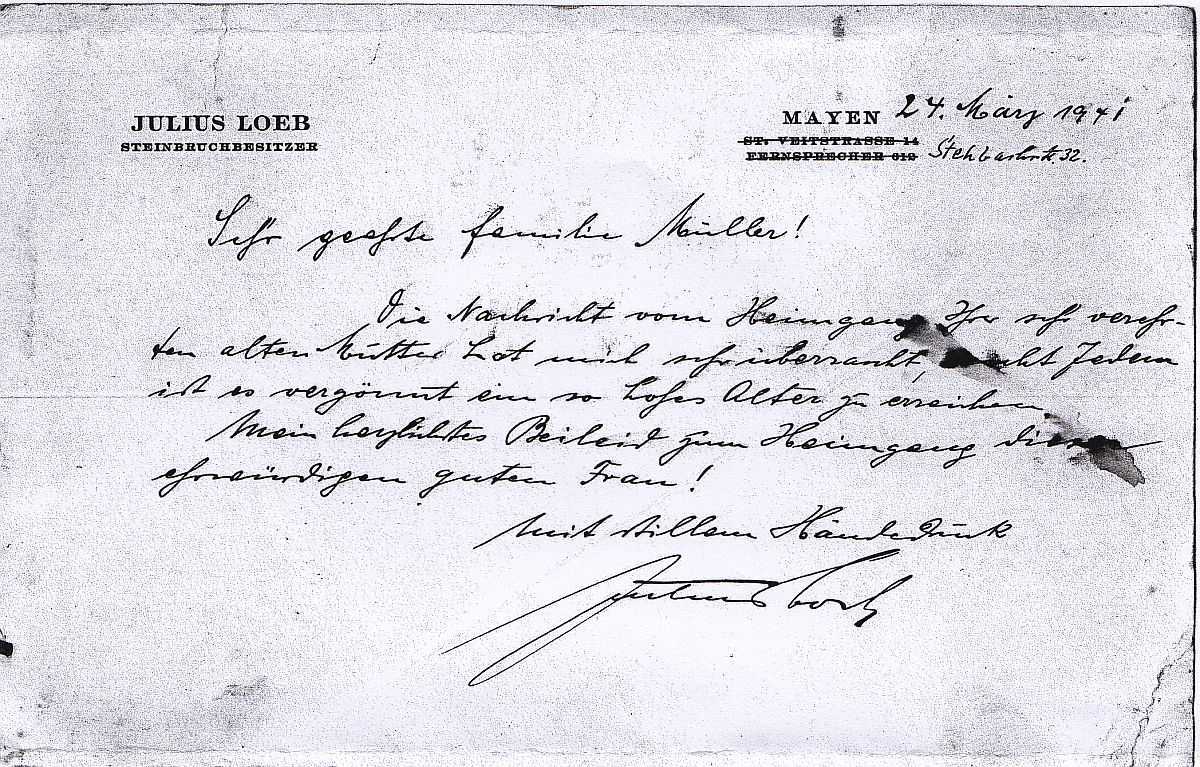 JULIUS LOEB
STEINBRUCHBESITZER
MAYEN 24. März 1941
ST. VEITSTRASSE 14
FERNSPRECHER 612 Stehbachstr. 32.
Sehr geehrte Familie Müller!
Die Nachricht vom Heimgang Ihrer sehr verehr-
ten alten Mutter hat mich sehr überrascht, nicht Jedem
ist es vergönnt ein so hohes Alter zu erreichen.
Mein herzlichstes Beileid zum Heimgang dieser
ehrwürdigen guten Frau!
Mit stillem Händedruck
Julius Loeb